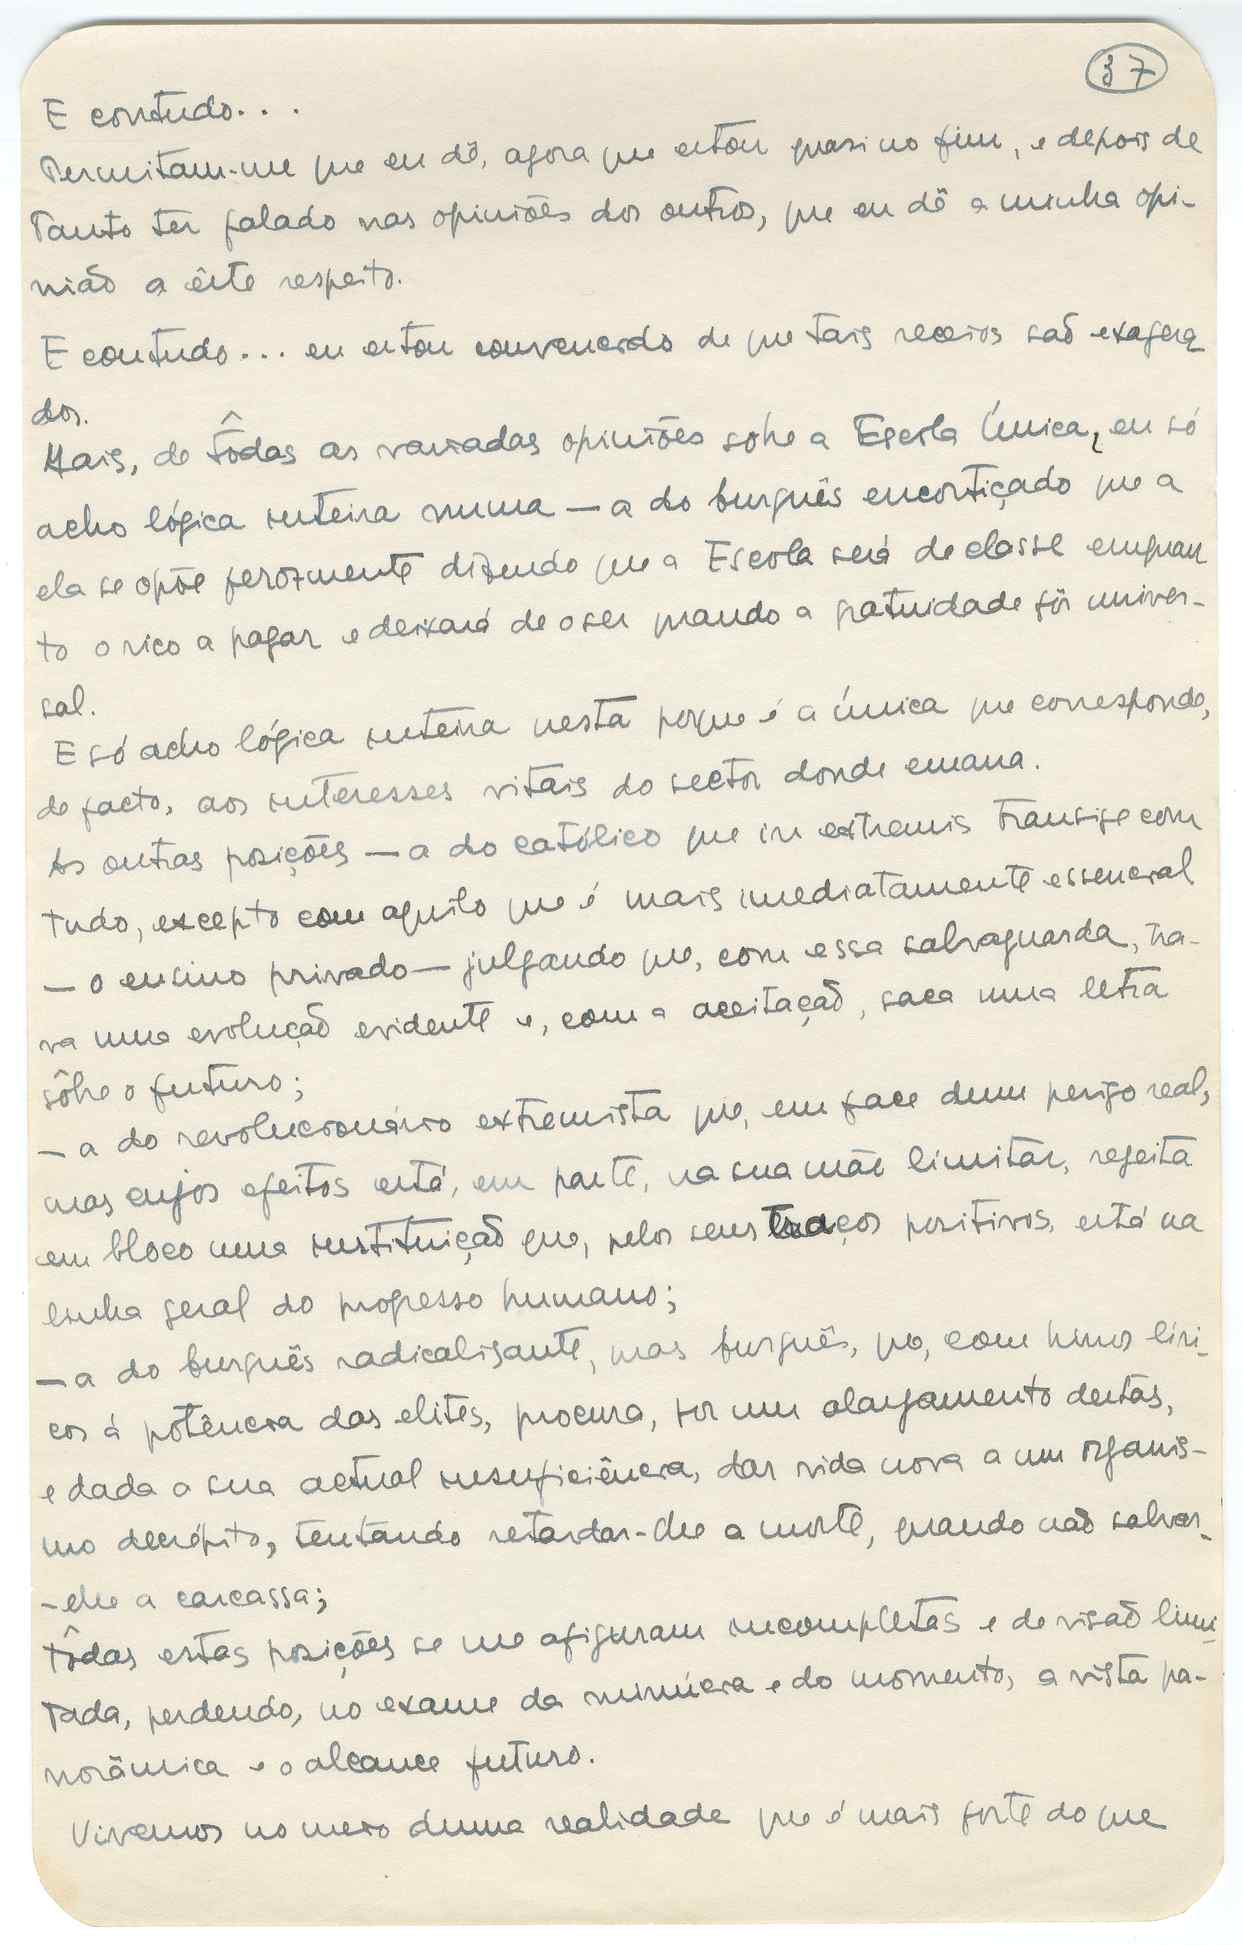 37
E contudo...
Permitam-me que eu dê, agora que estou quasi no fim, e depois de
tanto ter falado nas opiniões dos outros, que eu dê a minha opi-
nião a êste respeito.
E contudo... eu estou convencido de que tais receios são exagera
dos.
Mais, de tôdas as variadas opiniões sôbre a Escola Única, eu só
acho lógica inteira numa — a do burguês encortiçado que a
ela se opõe ferozmente dizendo que a Escola será de classe enquan
to o rico a pagar e deixará de o ser quando a gratuidade fôr univer-
sal.
E só acho lógica inteira nesta porque é a única que corresponde,
de facto, aos interesses vitais do sector donde emana.
As outras posições — a do católico que in extremis transige com
tudo, excepto com aquilo que é mais imediatamente essencial
— o ensino privado — julgando que, com essa salvaguarda, tra-
va uma evolução evidente e, com a aceitação, saca uma letra
sôbre o futuro;
— a do revolucionário extremista que, em face dum perigo real,
mas cujos efeitos está, em parte, na sua mão limitar, rejeita
em bloco uma instituição que, pelos seus traços positivos, está na
linha geral do progresso humano;
— a do burguês radicalisante, mas burguês, que, com hinos líri-
cos à potência das elites, procura, por um alargamento destas,
e dada a sua actual insuficiência, dar vida nova a um organis-
mo decrépito, tentando retardar-lhe a morte, quando não salvar-
-lhe a carcassa;
tôdas estas posições se me afiguram incompletas e de visão limi-
tada, perdendo, no exame da minúcia e do momento, a vista pa-
norâmica e o alcance futuro.
Vivemos no meio duma realidade que é mais forte do que